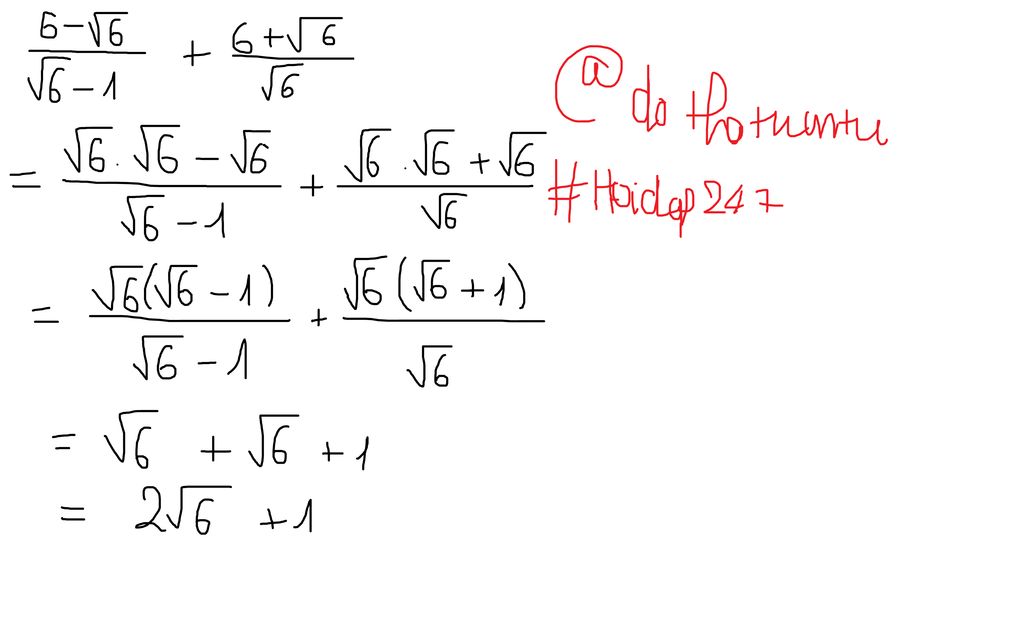 (6-√6)/(√6-1) + (6+√6)/√6
= (√6.√6-√6)/(√6-1) + (√6.√6+√6)/√6
= √6(√6-1)/(√6-1) + √6(√6+1)/√6
= √6 + √6 + 1
= 2√6 + 1
@do
#Hoidap247